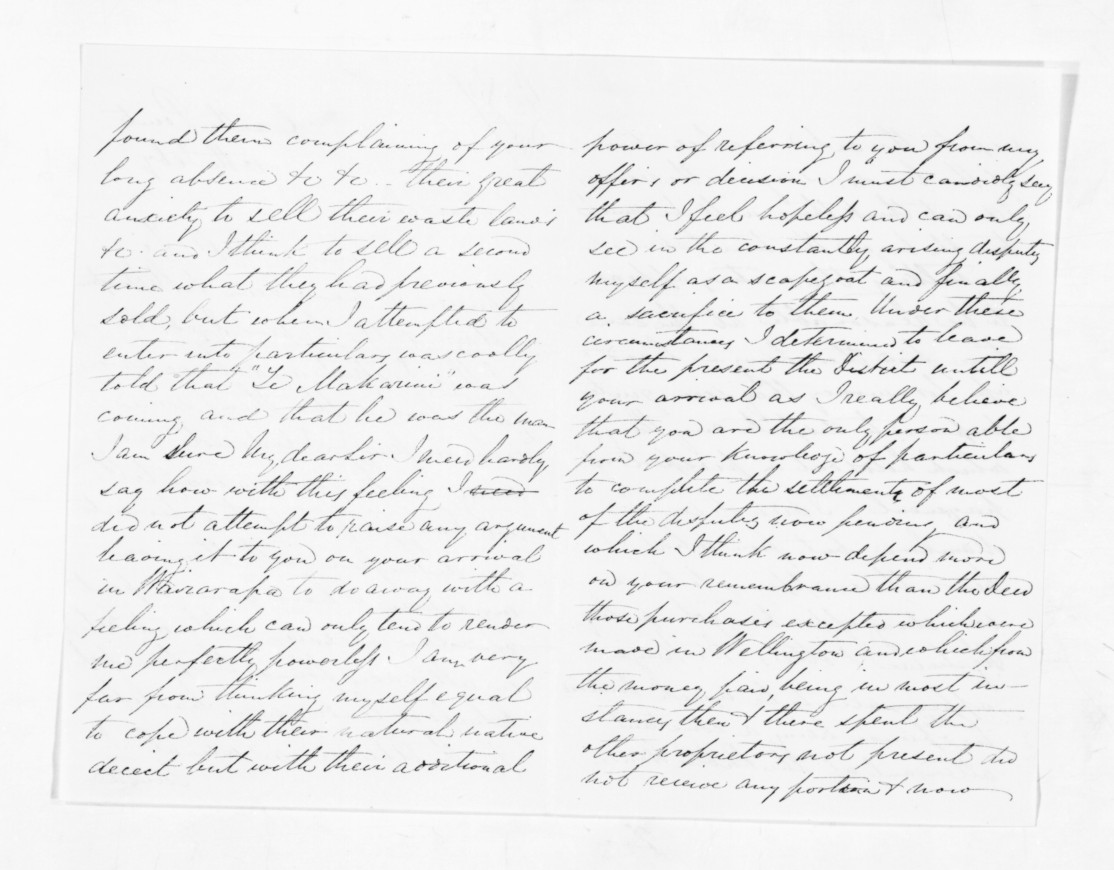 found them complaining of your
long absence &c &c.. their great
anxiety to sell their waste lands
&c. and I think to sell a second
time what they had previously
sold, but when I attempted to
enter into particulars was coolly
told that "Te Makarini" was
coming and that he was the man
I am sure My dear Sir I need hardly
say how with this feeling I need
did not attempt to raise any argument
leaving it to you on your arrival
in Wairarapa to do away with a
feeling which can only tend to render
me perfectly powerless I am very
far from thinking myself equal
to cope with their natural native
deceit but with their additional
power of referring to you from my
offers or decision I must candidly say
that I feel hopeless and can only
see in the constantly arising disputes
myself as a scapegoat and finally
a sacrifice to them. Under these
circumstances I determined to leave
for the present the District untill
your arrival as I really believe
that you are the only person able
from your knowledge of particulars
to complete the settlements of most
of the disputes now pending, and
which I think now depend more
on your remembrance than the Deed
those purchases excepted which were
made in Wellington and which from
the money paid being in most in-
stances then & there spent the
other proprietors not present did
not receive any portion & now